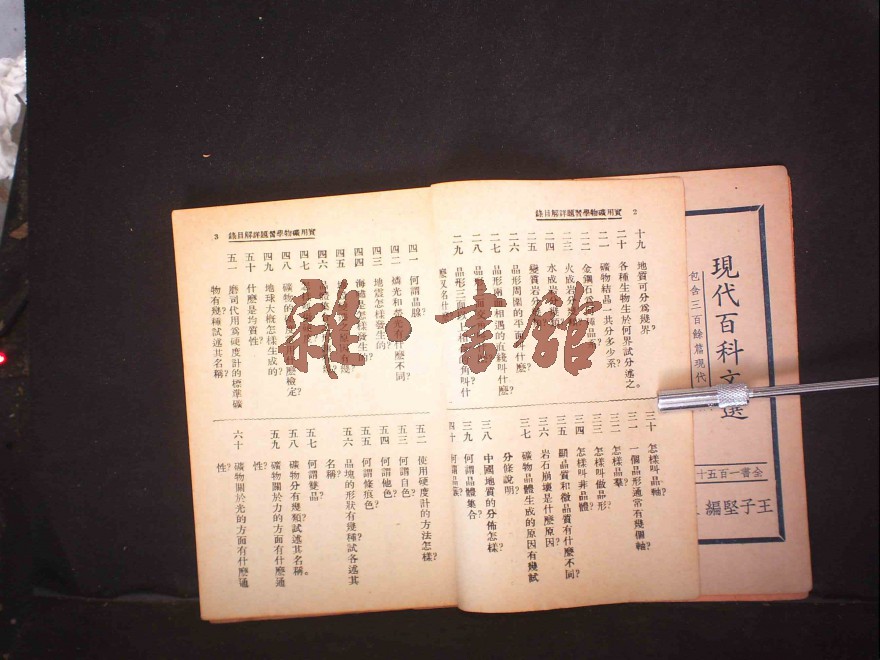 2 實用礦物學習題詳解目錄
十九 地質可分爲幾界?
二十 各種生物生於何界試分述之。
二一 礦物結晶一共分多少系?
二二 金鋼石
二三 火成岩分
二四 水成岩分幾
二五 變質岩分
二六 晶形周圍的平面 什麼?
二七 晶形兩 相遇的直綫叫什麼?
二八 晶
二九 晶形三 角叫什
麼又名什
三十 怎樣叫晶軸?
三一 一個晶形通常有幾個軸?
三二 怎樣晶羣?
三三 怎樣叫做晶形?
三四 怎樣叫非晶體?
三五 顯晶質和微晶質有什麼不同?
三六 岩石崩壞是什麼原因?
三七 礦物晶體生成的原因有幾試
分條說明?
三八 中國地質的分佈怎樣?
三九 何謂晶體集合?
四十 何謂晶體
實用礦物學習題詳解目錄 3
四一 何謂晶腺?
四二 燐光和螢光有什麼不同?
四三 地震怎樣發生的?
四四 海嘯是怎樣發生的?
四五 原因有幾
四六
四七
四八 礦物的 用什麼檢定?
四九 地球大概怎樣生成的
五十 什麼是均質性?
五一 磨司代用爲硬度計的標準礦
物有幾種試述其名稱?
五二 使用硬度計的方法怎樣?
五三 何謂自色?
五四 何謂他色?
五五 何謂條痕色?
五六 晶塊的形狀有幾種試各述其
名稱?
五七 何謂雙晶?
五八 礦物分有幾類?試述其名稱。
五九 礦物關於力的方面有什麼通
性?
六十 礦物關於光的方面有什麼通
性?
現代百科文選
包含三百餘篇現代
全書一百五十
王子堅編
雜·書館